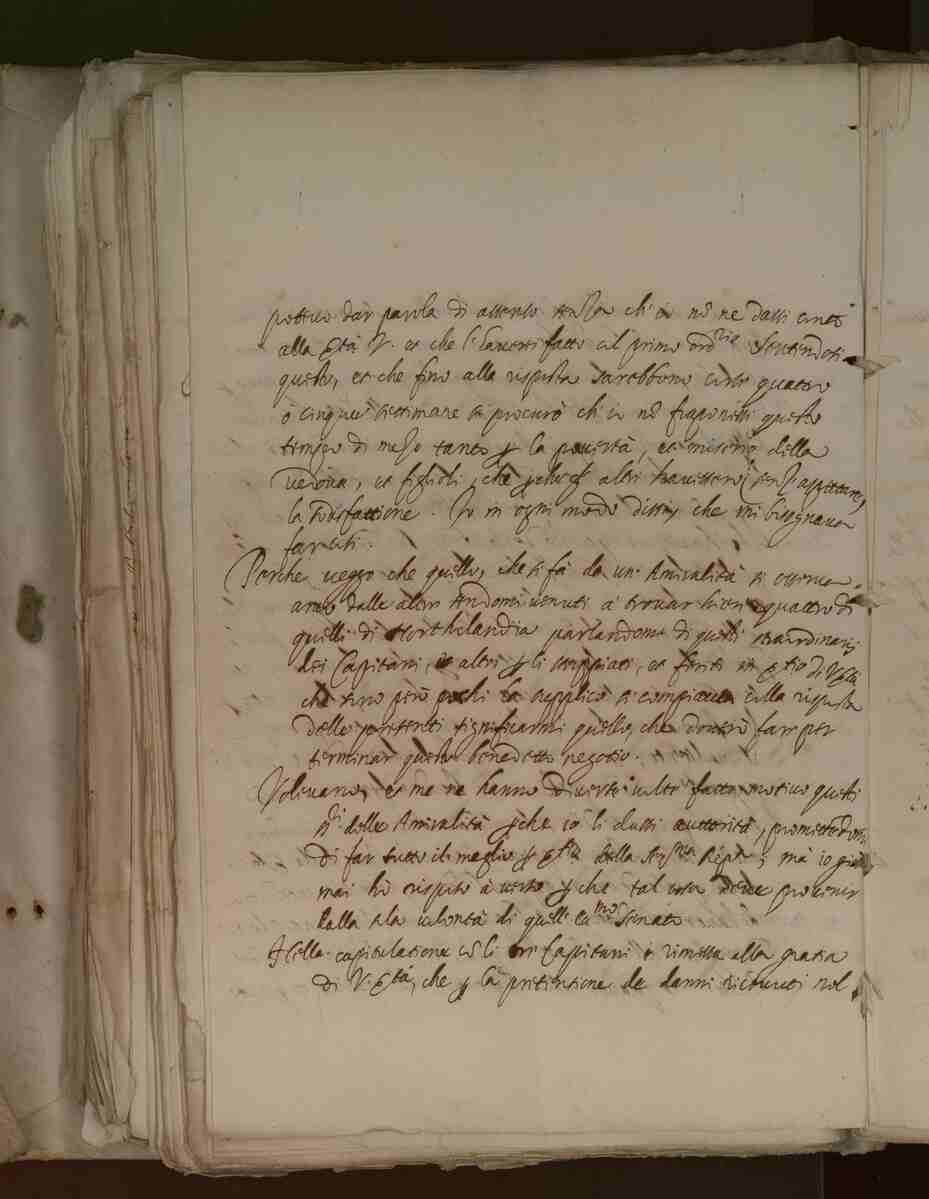 poteuo dar parola di assenso senza ch'io nõ ne dassi conto
alla Sẽtà V. et che l'hauerei fatto col primo ordrio. Sentendosi
questo, et che fino alla risposta sarebbono corse quattro
ò cinque settimane si procurò ch'io nõ fraponessi questo
tempo di mezo tanto p la pouertà, et miseria della
vedoua, et figlioli, che altri senza aspettare,
la sodisfattione. Io in ogni modo dissi, che mi bisognaua
farlo.
Perche ueggo che quello, che si fà da un' Amiralità si osserua
anco dalle altre sendomi uenuti à trouar hieri quattro di
quelli di Northolandia parlandomi di questi straordinarij
dei Capitani, et altri p li stroppiati, et feriti in di
che sono però pochi la supplico si compiaccia colla risposta
delle presenti significarmi quello, che douerò far per
terminar questo benedetto negotio.
Voleuano, et me ne hanno diuerse volte fatto motiuo questi
Sri delle Amiralità pche io li dassi auttorità, promettendomi
di far tutto il meglio p della Repca; mà io già
mai hò risposto à uerso pche tal cosa deue prouenir
dalla sola uolontà di quell'Ecc.mo Senato
Nella capitulatione cõ li Capitani è rimessa alla gratia
di V. Sẽtà, che p la pretensione de danni riceuuti nel